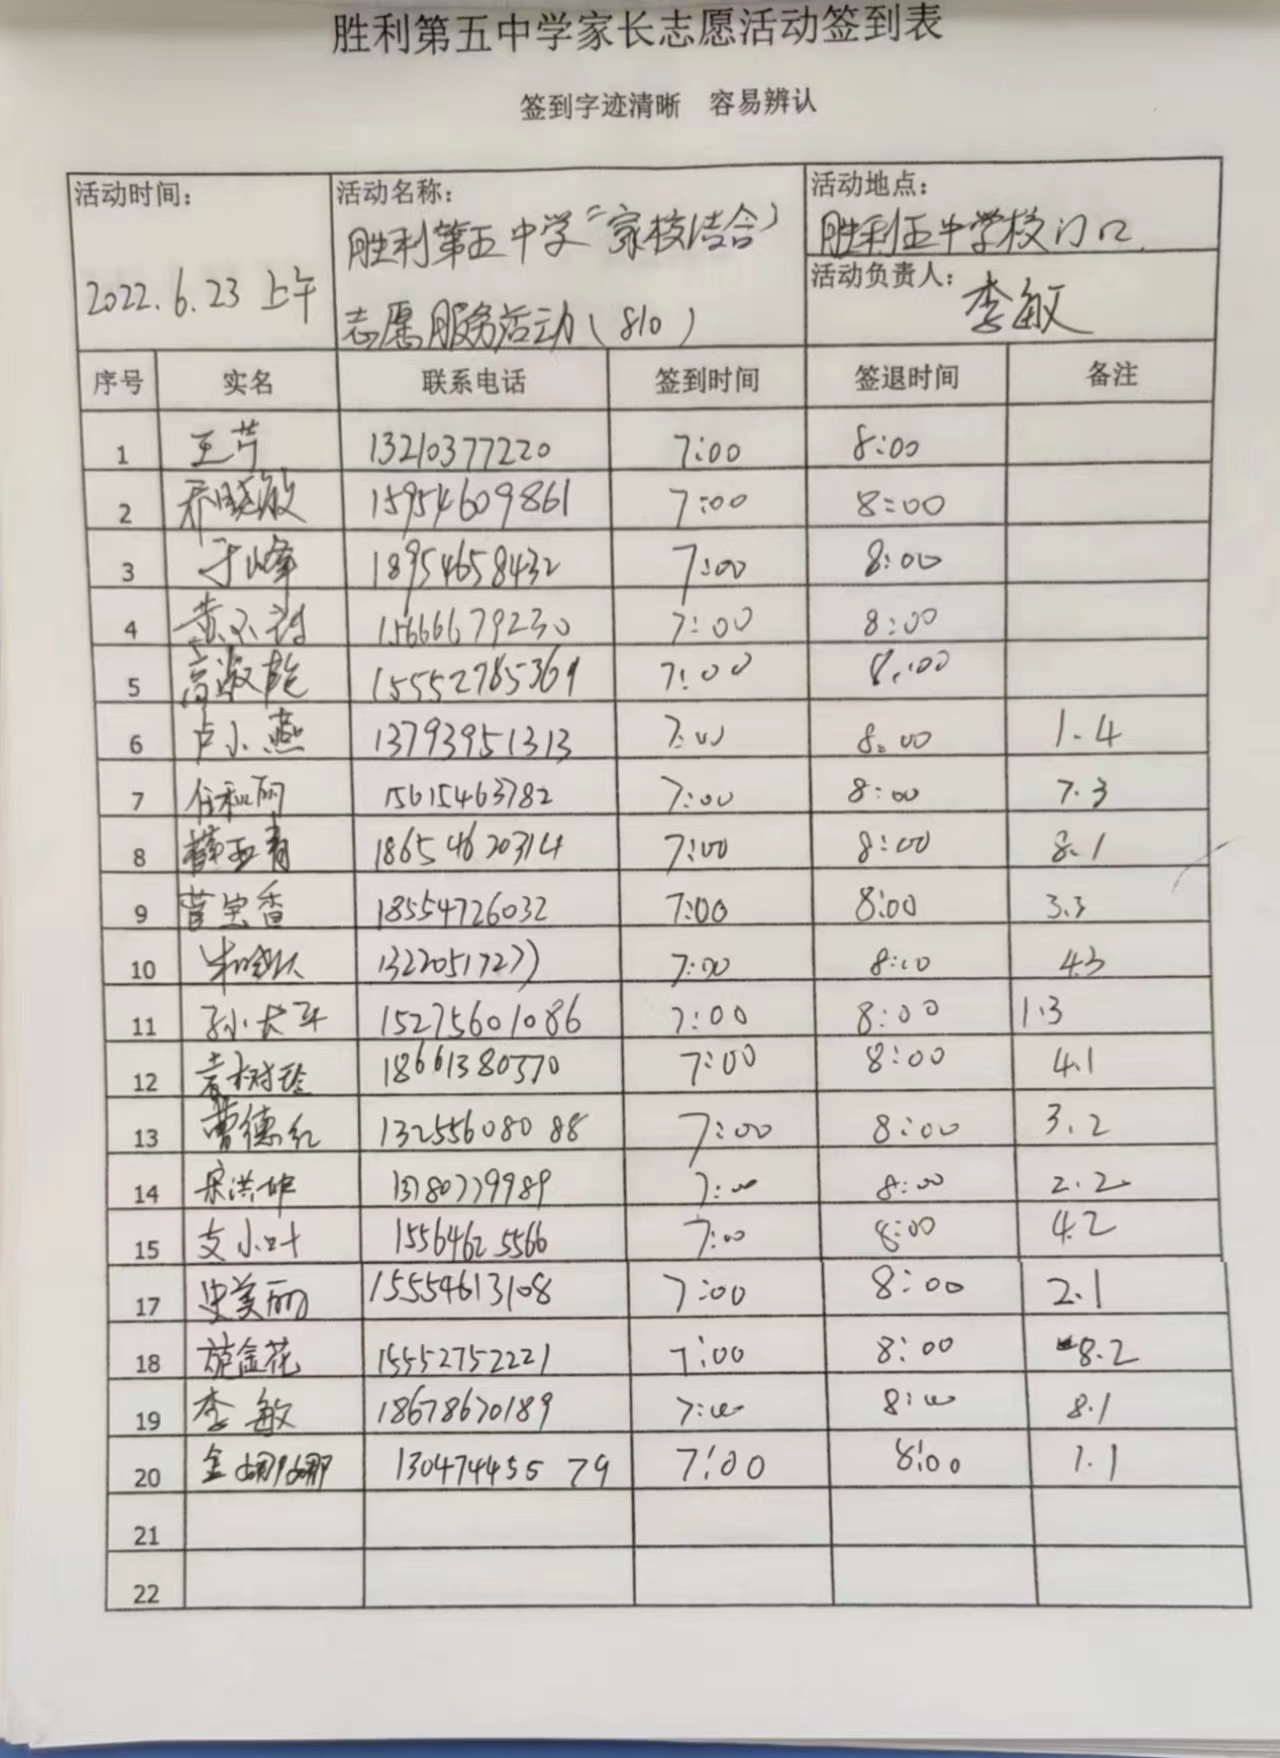 胜利第五中学家长志愿活动签到表
签到字迹清晰 容易辨认
活动时间: 活动名称: 活动地点:
胜利第五中学“家校结合” 胜利五中学校门口
2022.6.23 上午 活动负责人: 李敏
志愿服务活动(810)
序号 实名 联系电话 签到时间 签退时间 备注
1 王芹 13210377220 7:00 8:00
2 乔晓敏 15954609861 7:00 8:00
3 于峰 18954658432 7:00 8:00
4 15666679230 7:00 8:00
5 高淑艳 15552785369 7:00 8:00
6 卢小燕 13793951313 7:00 8:00 1.4
7 任利丽 15615463782 7:00 8:00 7.3
8 薛亚青 18654620314 7:00 8:00 8.1
9 菅宝香 18554726032 7:00 8:00 3.3
10 7:00 8:00 4.3
11 15275601086 7:00 8:00 1.3
12 袁树玲 18661380370 7:00 8:00 4.1
13 曹德红 13255608088 7:00 8:00 3.2
14 宋洪坤 13780779989 7:00 8:00 2.2
15 支小叶 15564625566 7:00 8:00 4.2
17 史美丽 15554613108 7:00 8:00 2.1
18 施金花 15552752221 7:00 8:00 8.2
19 李敏 18678670189 7:00 8:00 8.1
20 金娜娜 13047445579 7:00 8:00 1.1
21
22